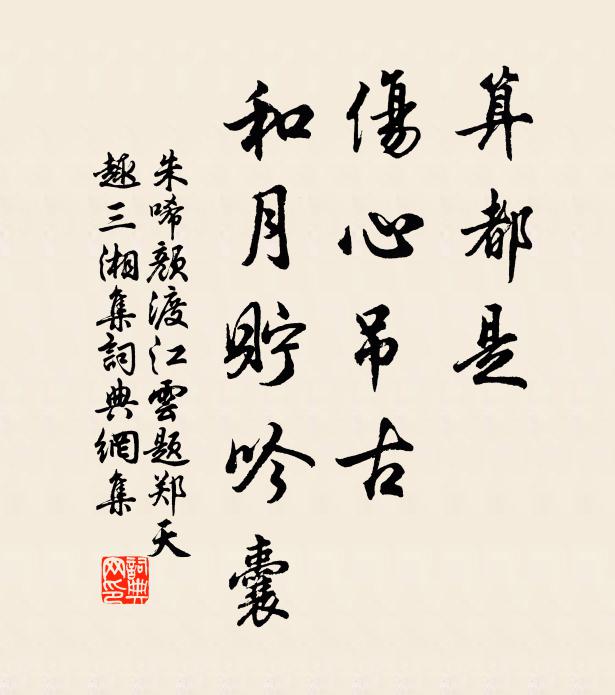 算都是
傷心吊古
和月貯吟囊
朱唏颜渡江雲题郑天
趣三湘集詞典網集
詞典
网印